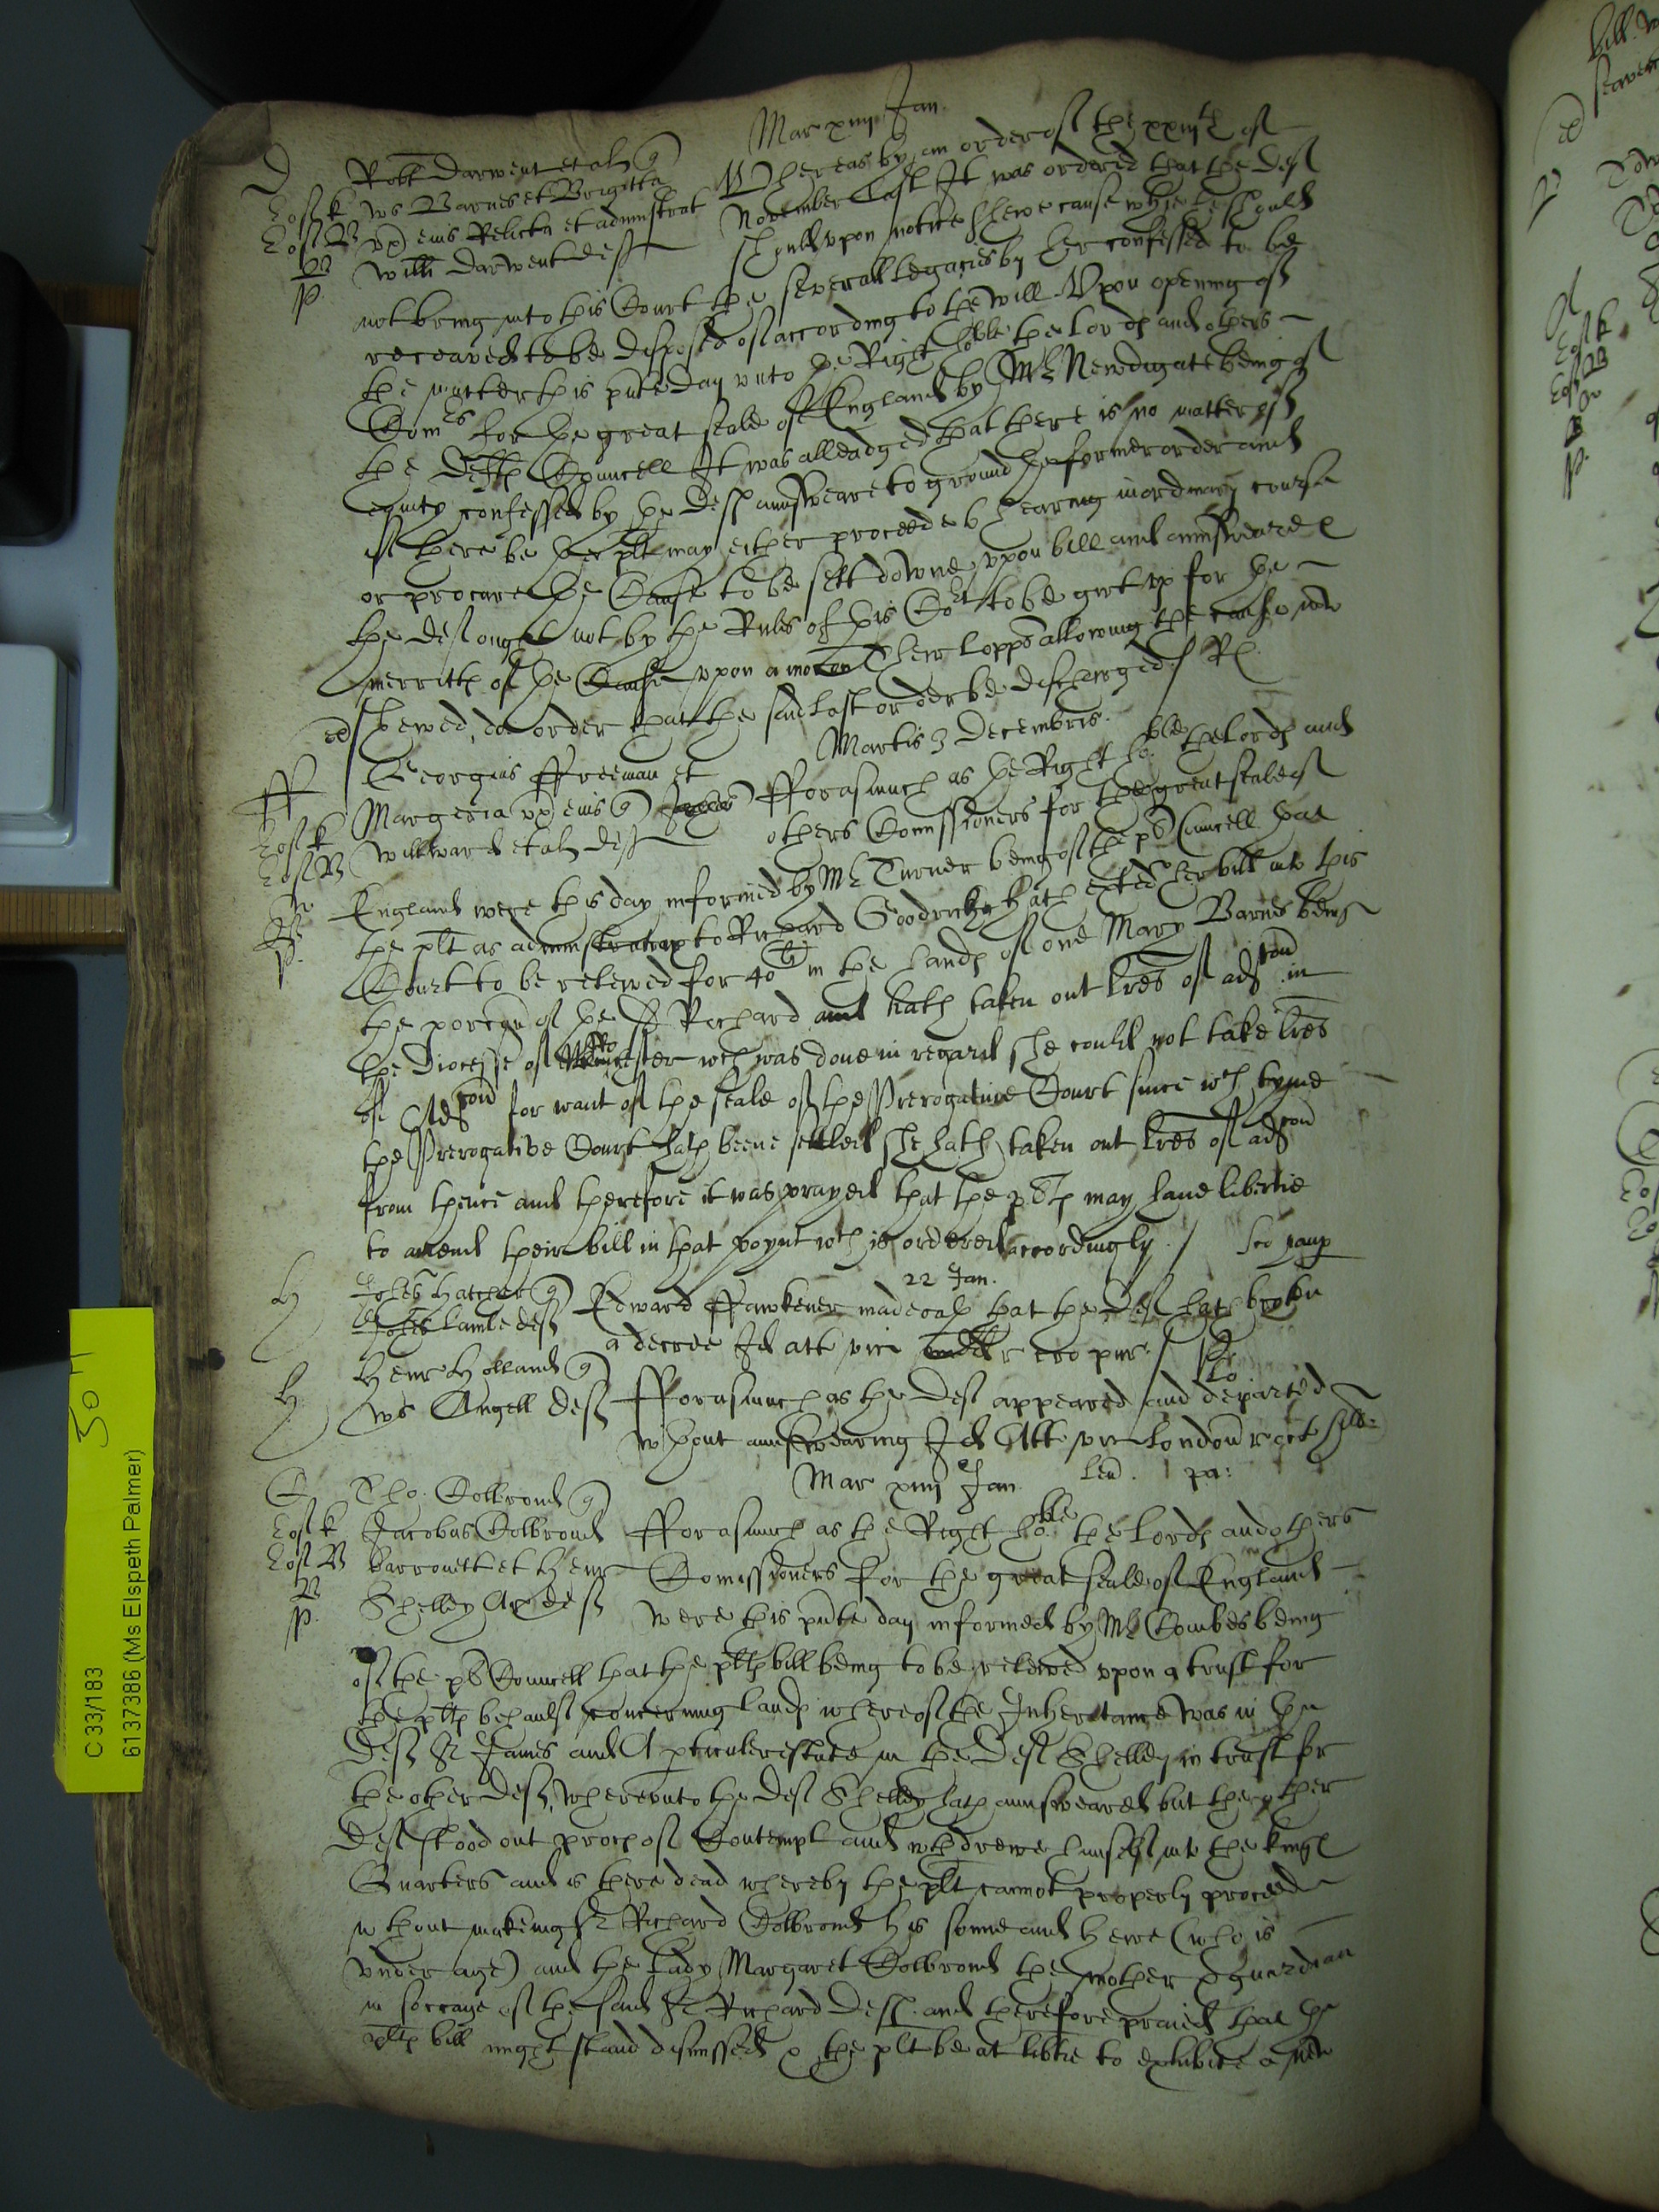 Mar xiiij Jan
D Robt Darwent et al q
Lo: K ws Barnes et Brigitta
Lo: B ux eius Relicta et administrat
Willi Darwent def
p.
Whereas by an order of the xxiijth of
November last It was ordered that the def
should upon notice shewe cause why she should
not bring into this Court the severall legacies by her confessed to be
receaved to be disposed of according to the will Upon opening of
the matter this pnte day unto the Right hoble the Lords and others
Comrs for the great seale of England by Mr Newdigate being of
the defts Councell It was alleadged that there is no matter of
equity confessed by the def answeare to ground the former order and
if there be the plt may either proceede to hearing in ordinary course
or procure the Cause to be sett downe upon bill and answeare &
the def ought not by the Rules of this Cort to be put up for the
merritts of the Cause upon a mocon Their Lopps allowing the cause now
shewed, doe order that the said last order be discharged / R
ed
Martis 3 Decembris.
ff Georgius ffreeman et
Margeria ux eius q
Lo: K
Lo: B Willward et al def
p.
fforasmuch as the Right hoble the Lords and
others Comissioners for the great seale of
England were this day informed by Mr Turner being of the pls Councell that
the plt as administratrix to Richard Goodricke hath exhted her bill into this
Court to be releived for 40li in the hands of one Mary Barnes being
the porcon of the sd Richard and hath taken out lres of adcon in
the Diocesse of wch was done in regard she could not take lres
of Adcon for want of the seale of the Prerogative Court since wch tyme
the Prerogative Court hath beene setled she hath taken out lres of adcon
from thence and therefore it was prayed that the plts may have libertie
to amend their bill in that poynt wch is ordered accordingly /
22 Jan.
H Johes Hatcher q
Johes Lambe def
Edward ffawkener made oath that the def hath broken
a decree Id att vic
H Henr Holland q
ws Angell def
fforasmuch as the def appeared and departed
wthout answearing Id Att vic London
Mar xiiij Jan
C Tho: Colbrond q
Lo: K Jacobus Colbrond
Lo: B barronett et Henr
Shelley Ar def
p.
fforasmuch as the Right hoble the Lords and others
Comissioners for the great seale of England
were this pnte day informed by Mr Combes being
of the pls Councell that the plts bill being to be releived upon a trust for
the plts behaulf concerning lands whereof the Inheritance was in the
def Sr James and A pticuler estate in the def Shelley in trust for
the other def, whereunto the def Shelley hath answeared but the other
def stood out proces of Contempt and wthdrewe himself into the kings
Quarters and is there dead whereby the plt cannot properly proceed
wthout making Sr Richard Colbrond his sonne and heire (who is
under age) and the Lady Margaret Colbrond the mother & guardian
in soccage of the said Sr Richard defs. and therefore praied that the
plts bill might stand dismissed & the plt be at libtie to exhibite a new
304
C 33/183
6137386 (Ms Elspeth Palmer)